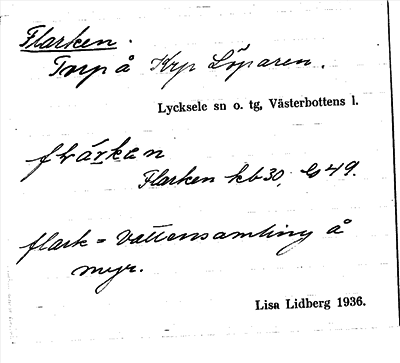 Flarken.
Torp å Krp Löparen.
Lycksele sn o. tg, Västerbottens l.
flárkən
Flarken kb 30, Gs 49.
flark = vattensamling å
myr.
Lisa Lidberg 1936.